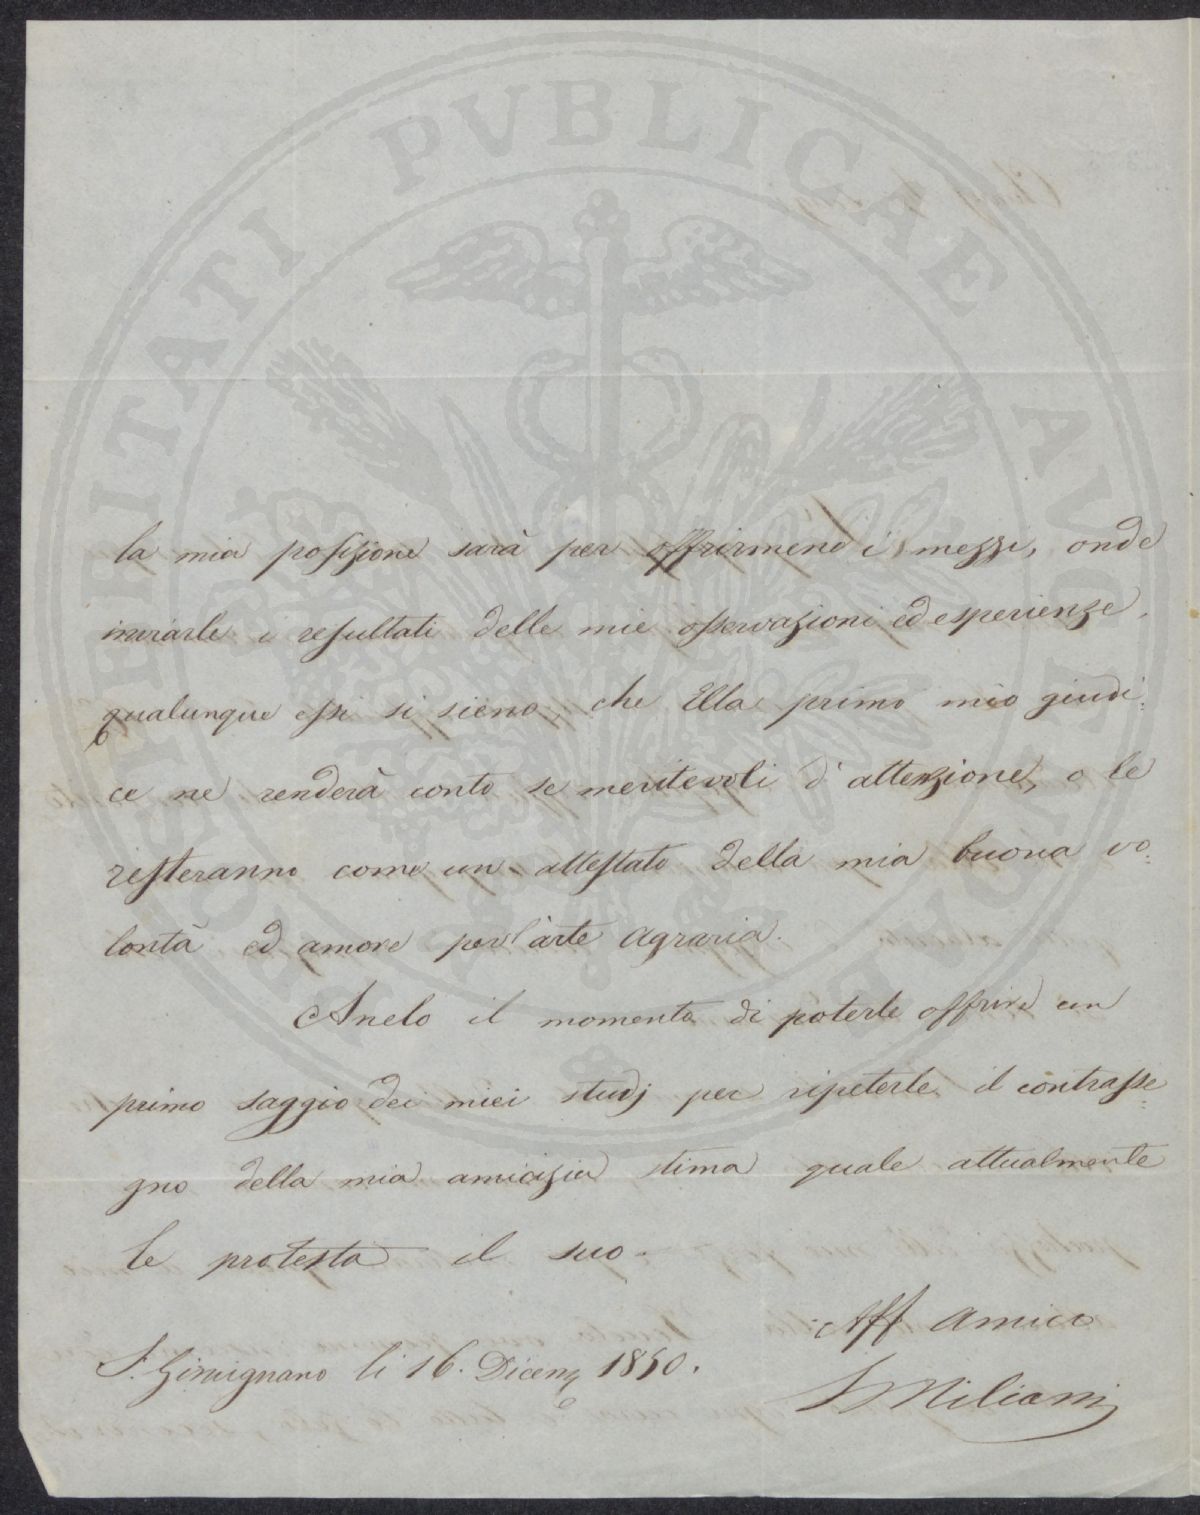 PROSPERITATI PVBLICAE AVGENDAE
la mia posizione sarà per offrirmene i mezzi, onde
inviarle i resultati delle mie osservazioni ed esperienze,
qualunque essi si sieno, che Ella primo mio giudi:
ce ne renderà conto se meritevoli d'attenzione, o le
resteranno come un attestato della mia buona vo:
lontà ed amore per l'arte agraria.
Anelo il momento di poterle offrire un
primo saggio dei miei studj per ripeterle il contrasse:
gno della mia amicizia stima quale attualmente
le protesta il suo.
Aff Amico
S. Gimignano li 16. Dicem 1850.
Miliani